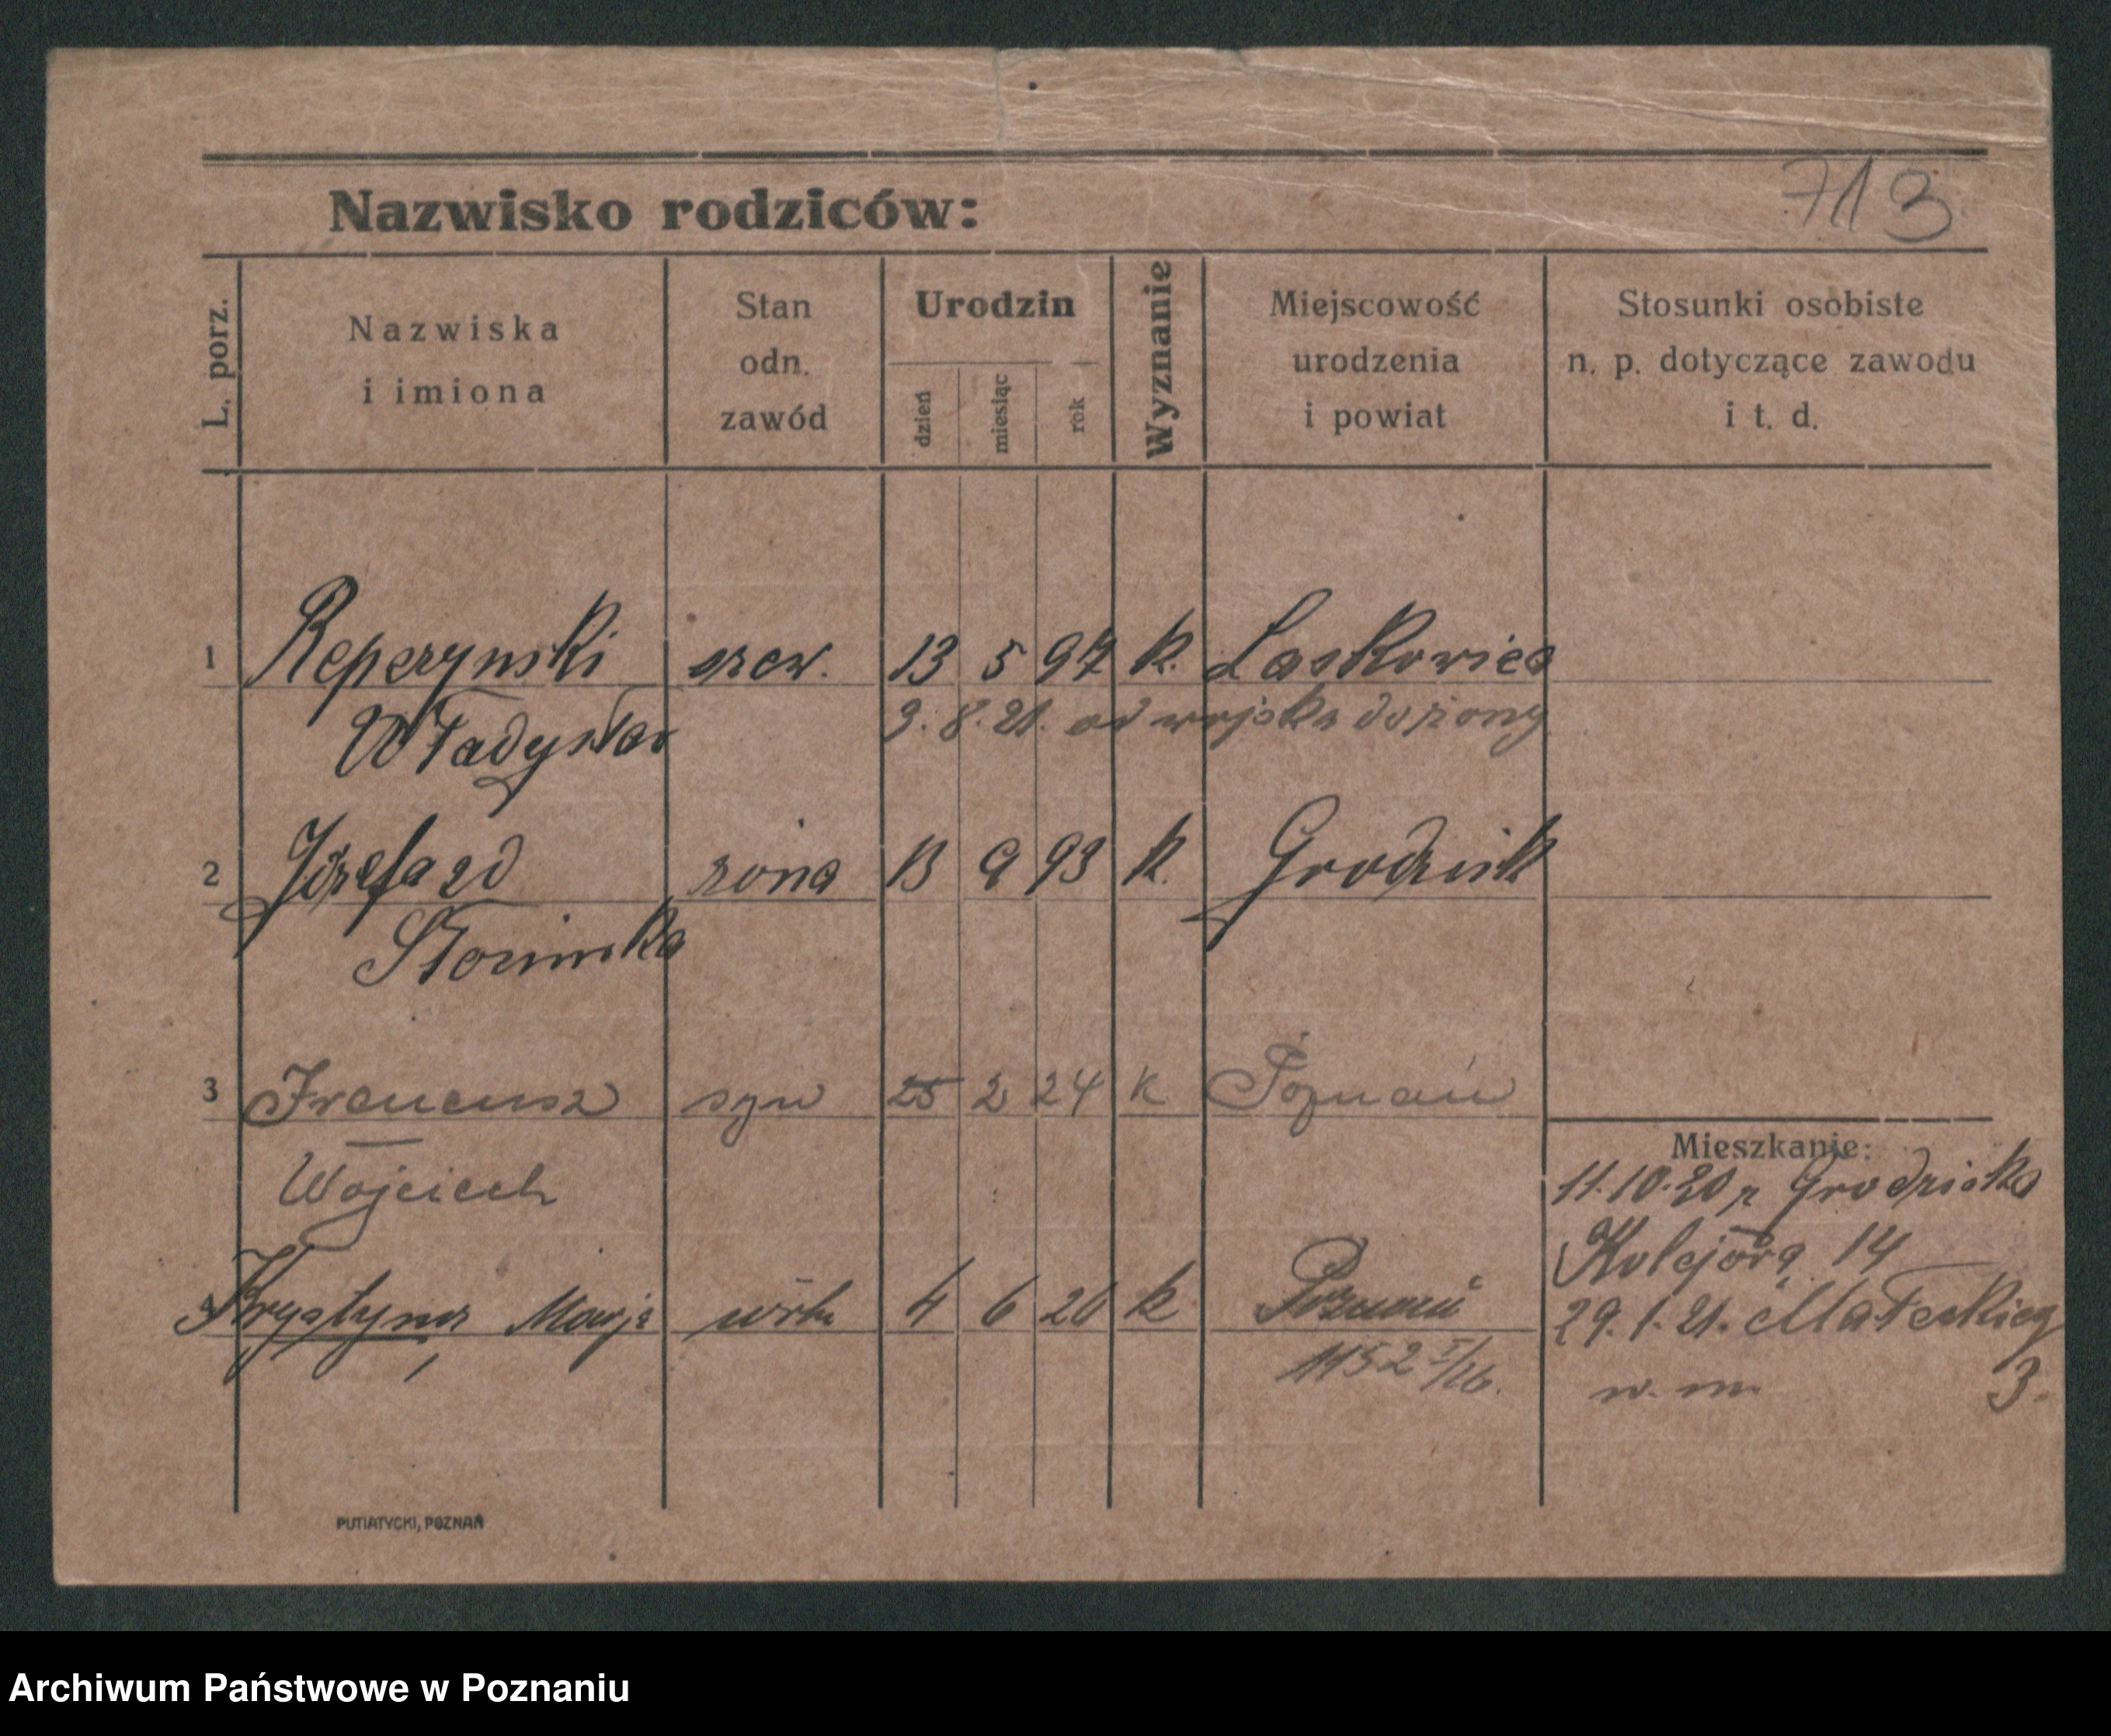 713
Nazwisko rodziców:
L. porz.
Nazwiska
i imiona
Stan
odn.
zawód
Urodzin
dzień
miesiąc
rok
Wyznanie
Miejscowość
urodzenia
i powiat
Stosunki osobiste
n. p. dotyczące zawodu
i t. d.
1 Reperzynski szew. 13 5 97 k. Laskowice
Władysław 3. 8. 21. od wojska do żony
2 Józefa zd żona 13 9 93 k. Grodzisk
Słonimska
3 Franciszek syn 25 2 24 k Poznań
Wojciech
Mieszkanie:
11.10.20 z Grodziska
Kolejowa 14
4 Krystyna Marja córka 4 6 26 k Poznań
29.1.21. Małeckieg
1152 I/26.
w. m. 3.
PUTIATYCKI, POZNAŃ
Archiwum Państwowe w Poznaniu